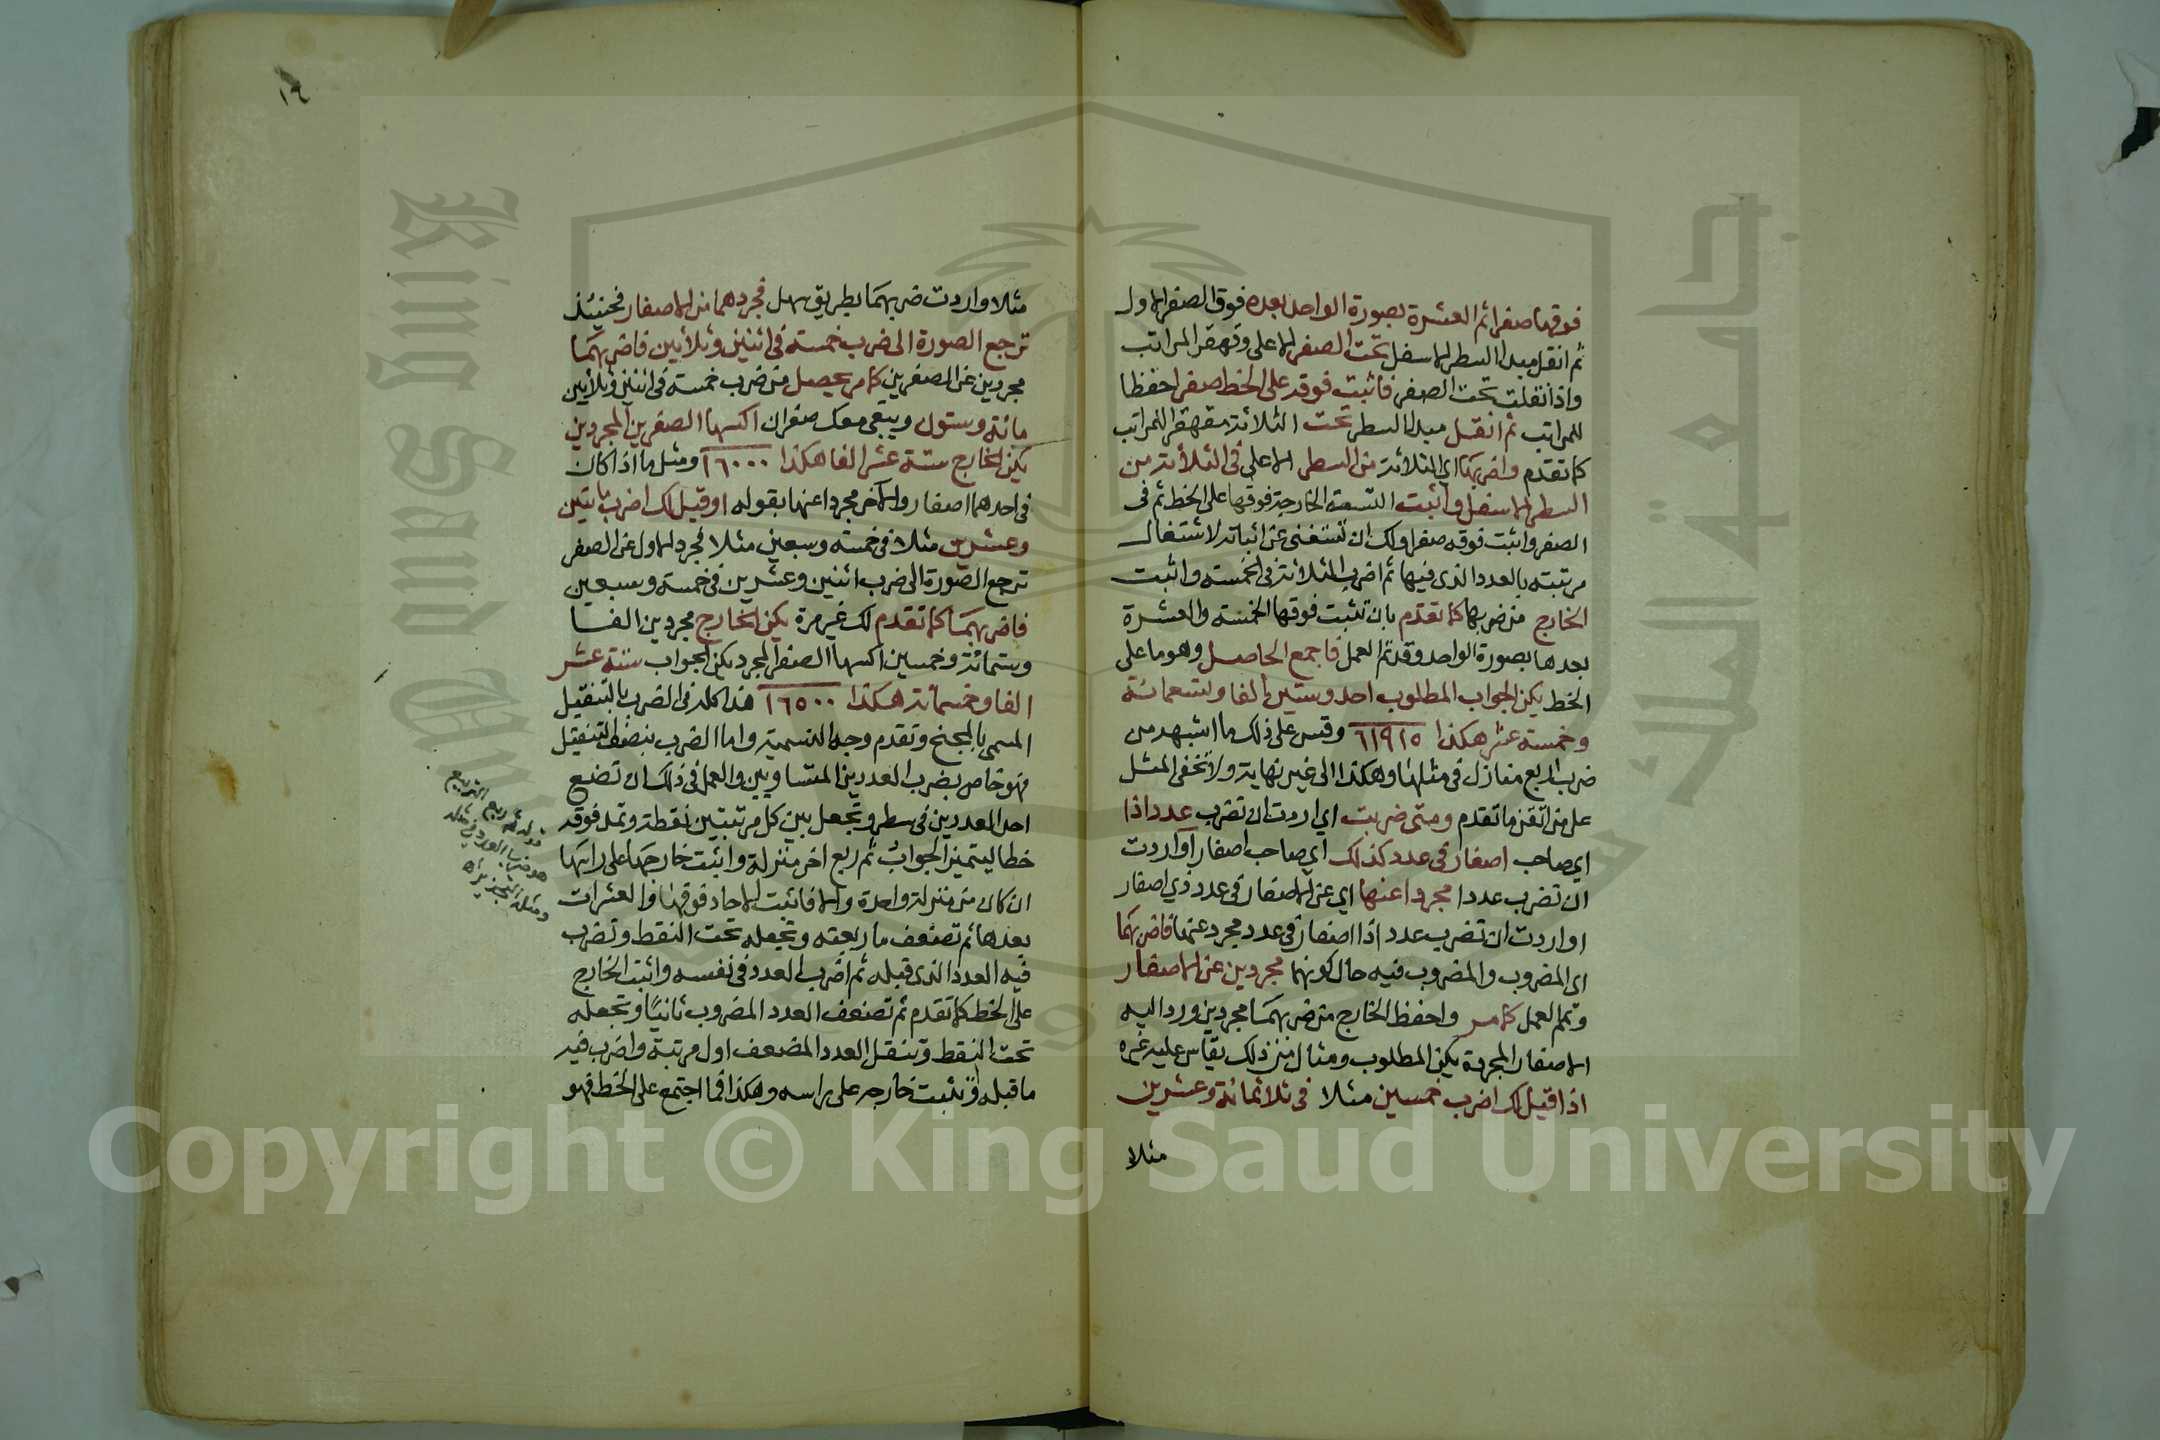 فوقها صفرا ثم العشرة بصورة الواحد بعده فوق الصفر الاول
ثم انقل مبدا السطر الاسفل تحت الصفر الاعلى وقهقر المراتب
واذا نقلت تحت الصفر فاثبت فوقه على الخط صفرا حفظا
للمراتب ثم انقل مبدا السطر تحت الثلاثة مقهقر المراتب
كما تقدم واضربها اي الثلاثة من السطر الاعلى في الثلاثة من
السطر الاسفل واثبت التسعة الخارجة فوقها على الخط ثم في
الصفر واثبت فوقه صفرا ولك ان تستغني عن اثباته لاشتغال
مرتبته بالعدد الذي فيها ثم اضرب الثلاثة في الخمسة واثبت
الخارج من ضربها كما تقدم بان تثبت فوقها الخمسة والعشرة
بعدها بصورة الواحد وقد تم العمل فاجمع الحاصل وهو ما على
الخط يكن الجواب المطلوب احد وستين الفا وتسعمائة
وخمسة عشر هكذا ٦١٩١٥ وقس على ذلك ما اشبهه من
ضرب اربع منازل في مثلها وهكذا الى غير نهاية ولا يخفى المثل
على من اتقن ما تقدم ومتى ضربت اي اردت ان تضرب عددا ذا
اي صاحب اصفار في عدد كذلك اي صاحب اصفار او اردت
ان تضرب عددا مجردا عنها اي عن الاصفار في عدد ذي اصفار
او اردت ان تضرب عددا ذا اصفار في عدد مجرد عنها فاضربهما
اي المضروب والمضروب فيه حال كونهما مجردين عن الاصفار
وتمم العمل كما مر واحفظ الخارج من ضربهما مجردين ورد اليه
الاصفار المجردة يكن المطلوب ومثال من ذلك يقاس عليه غيره
اذا قيل لك اضرب خمسين مثلا في ثلاثمائة وعشرين
مثلا
١٤
مثلا واردت ضربهما بطريق سهل فجردهما من الاصفار فحينئذ
ترجع الصورة الى ضرب خمسة في اثنين وثلاثين فاضربهما
مجردين عن الصفرين كما مر يحصل من ضرب خمسة في اثنين وثلاثين
مائة وستون ويبقى معك صفران اكسها الصفرين المجردين
يكن الخارج ستة عشر الفا هكذا ١٦٠٠٠ ومثل ما اذا كان
في احدهما اصفار والآخر مجردا عنها بقوله او قيل لك اضرب مايتين
وعشرين مثلا في خمسة وسبعين مثلا فجرد الاول عن الصفر
ترجع الصورة الى ضرب اثنين وعشرين في خمسة وسبعين
فاضربهما كما تقدم لك غير مرة يكن الخارج مجردين الفا
وستمائة وخمسين اكسها الصفر المجرد يكن الجواب ستة عشر
الفا وخمسمائة هكذا ١٦٥٠٠ هذا كله في الضرب بالتنقيل
المسمى بالمجنح وتقدم وجه التسمية واما الضرب بنصف التنقيل
فهو خاص بضرب العددين المتساويين والعمل في ذلك ان تضع
احد العددين في سطر وتجعل بين كل مرتبتين نقطة وتمد فوقه
خطا ليتميز الجواب ثم ربع اخر منزلة واثبت خارجها على رايها
ان كان من منزلة واحدة والا فاثبت الاحاد فوقها والعشرات
بعدها ثم تضعف ما ربعته وتجعله تحت النقط وتضرب
فيه العدد الذي قبله ثم اضرب العدد في نفسه واثبت الخارج
على الخط كما تقدم ثم تضعف العدد المضروب ثانيًا وتجعله
تحت النقط وتنقل العدد المضعف اول مرتبة واضرب فيه
ما قبله وتثبت خارجه على راسه وهكذا فما اجتمع على الخط فهو
قوله ثم ربع التربيع
هو ضرب العدد في مثله
ومثله التجذير